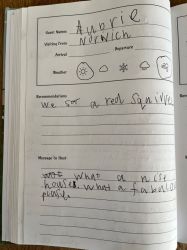 Guest Name: Aubrie
Visiting From: Norwich
Arrival Departure
Weather
Recommendations
we sor a red Squirrel
Message to Host
what a nise
house. what a fabal